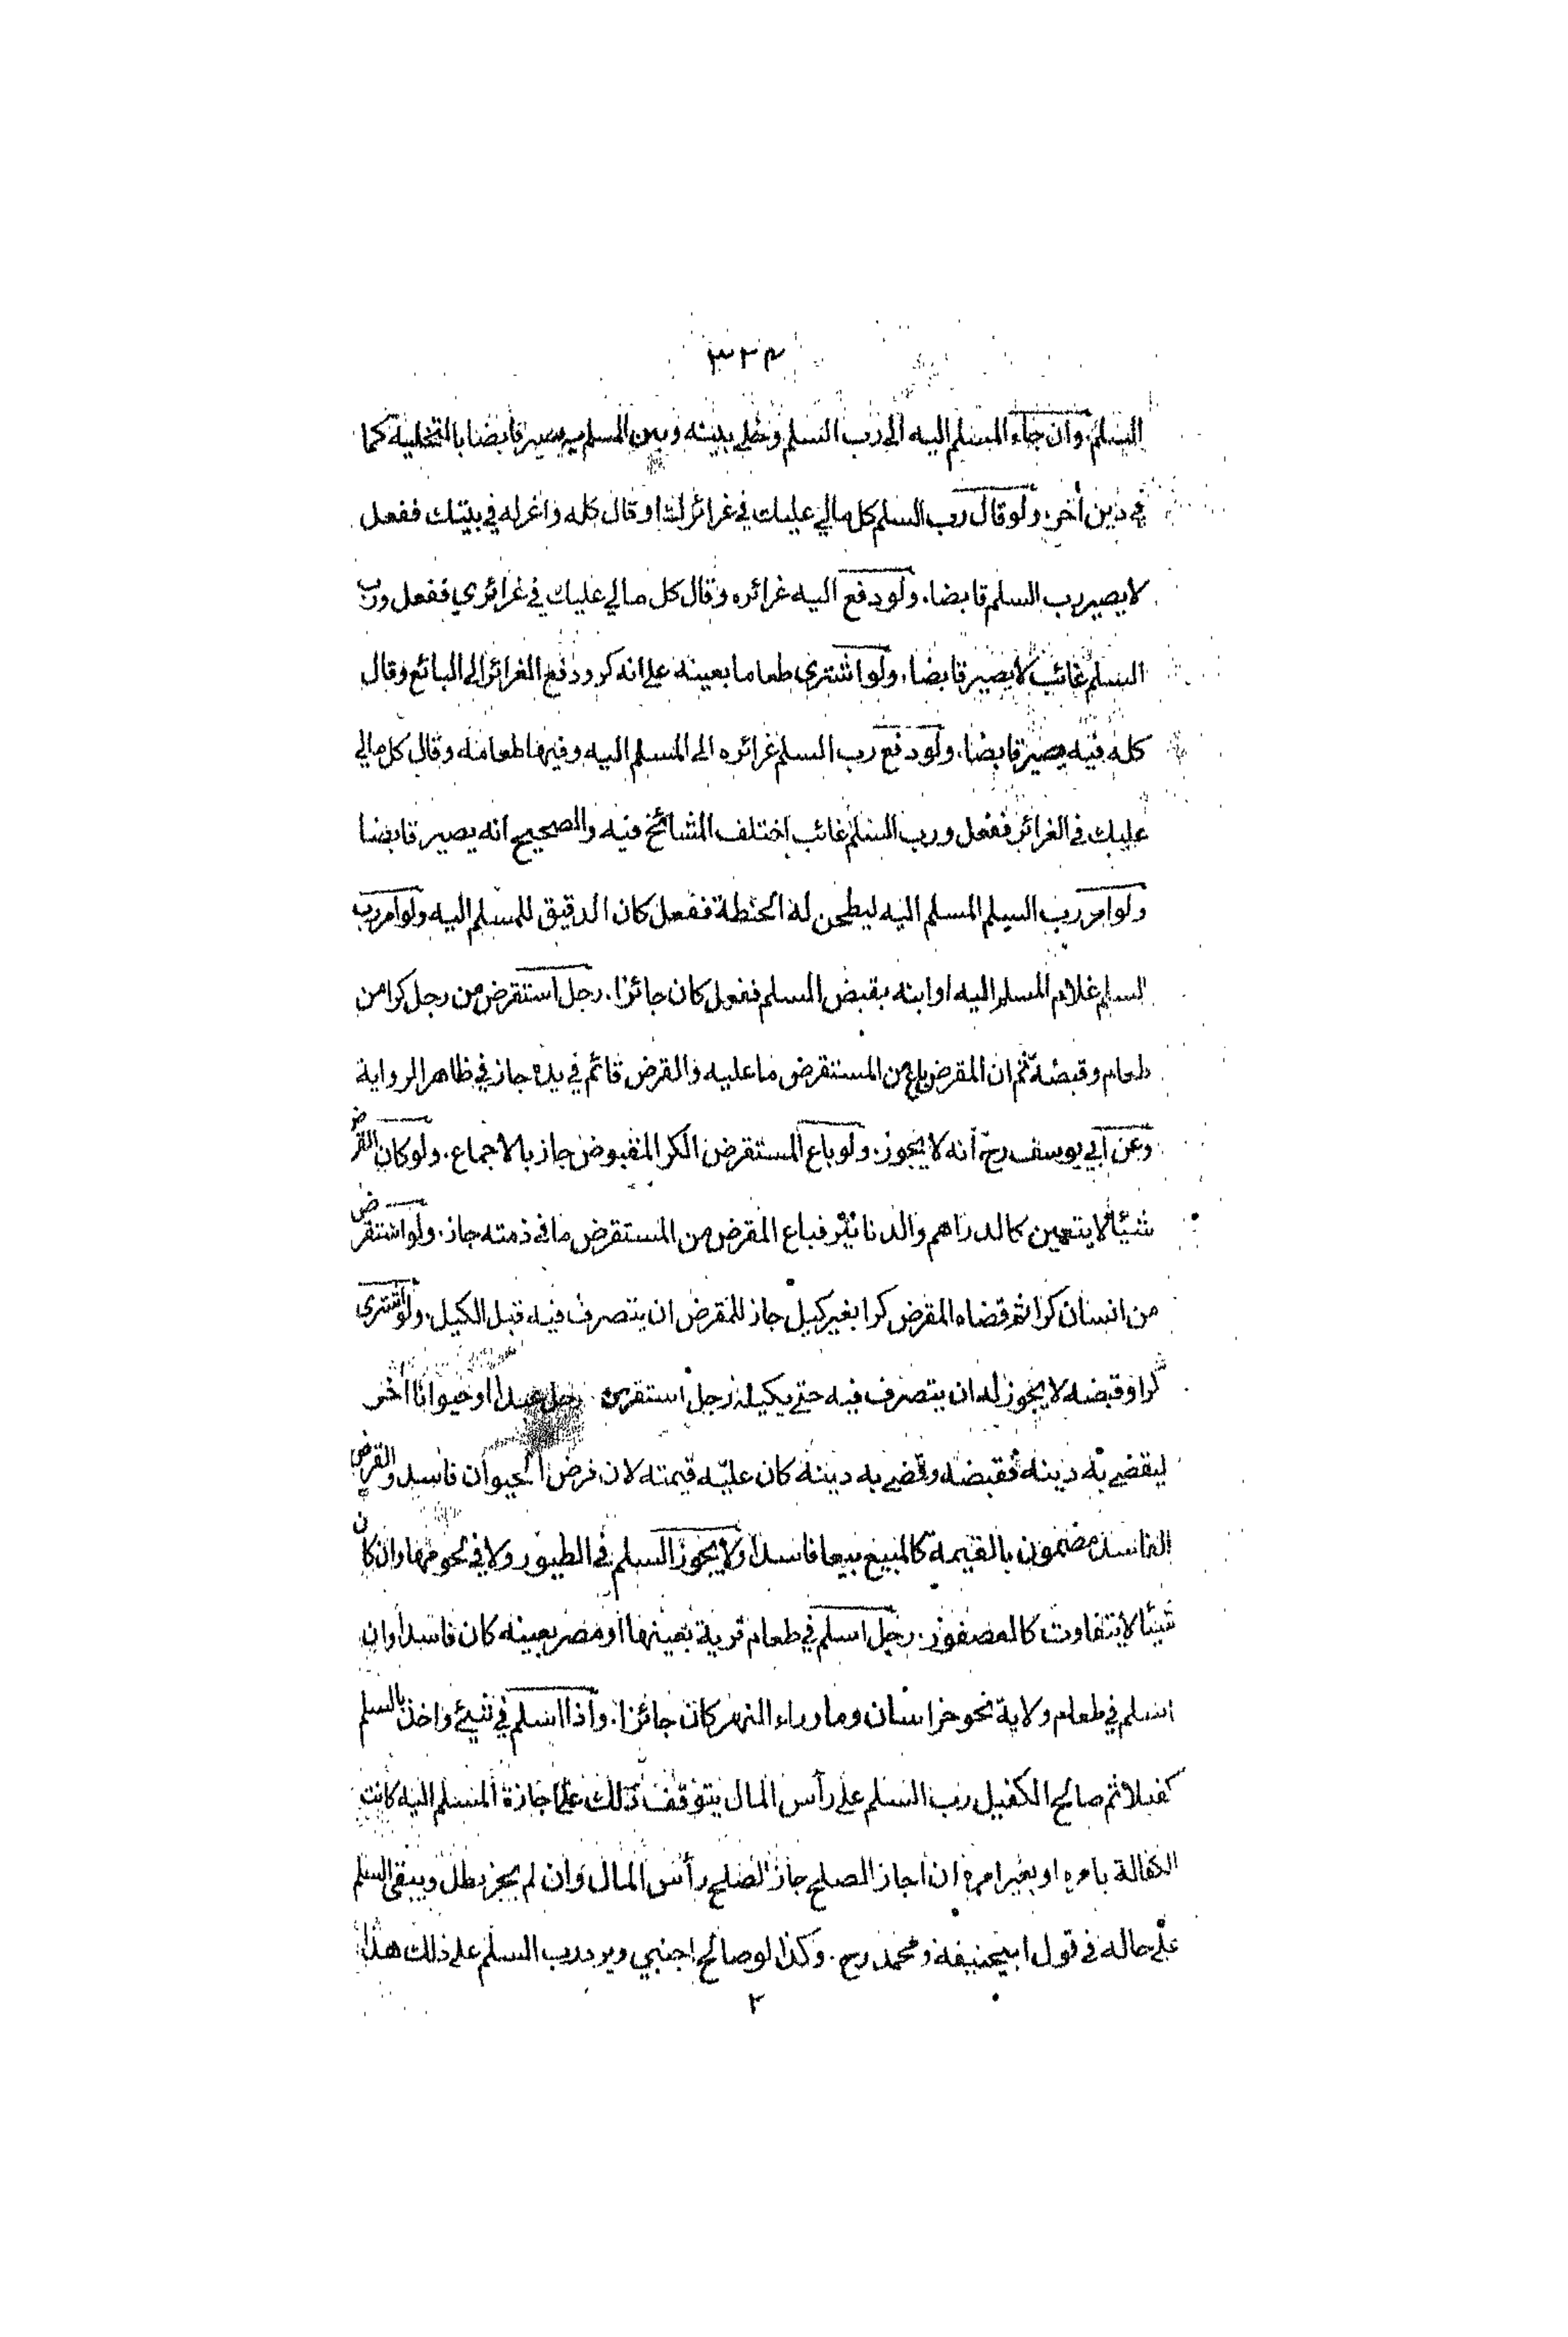 ٣٢٣
السلم وان جاء المسلم اليه الى رب السلم وخلى بينه وبين المسلم فيه يصير قابضا بالتخلية كما
في دين أخر. ولو قال رب السلم كل مالي عليك في غرائرك او قال كله واعزله في بيتك ففعل
لا يصير رب السلم قابضا. ولو دفع اليه غرائره وقال كل مالي عليك في غرائري ففعل ورب
السلم غائب لا يصير قابضا. ولو اشترى طعاما بعينه على انه كر ودفع الغرائر الى البائع وقال
كله فيه يصير قابضا. ولو دفع رب السلم غرائره الى المسلم اليه وفيها طعامه وقال كل مالي
عليك في الغرائر ففعل ورب السلم غائب اختلف المشائخ فيه والصحيح انه يصير قابضا
ولو امر رب السلم المسلم اليه ليطحن له الحنطة ففعل كان الدقيق للمسلم اليه ولو امر رب
السلم غلام المسلم اليه او ابنه بقبض المسلم ففعل كان جائزا. رجل استقرض من رجل كرا من
طعام وقبضه ثم ان المقرض باع من المستقرض ما عليه والقرض قائم في يده جاز في ظاهر الرواية
وعن ابي يوسف رح انه لا يجوز. ولو باع المستقرض الكر المقبوض جاز بالاجماع. ولو كان القرض
شيئا لا يتعين كالدراهم والدنانير فباع المقرض من المستقرض ما في ذمته جاز. ولو استقرض
من انسان كرا ثم قضاه المقرض كرا بغير كيل جاز للمقرض ان يتصرف فيه قبل الكيل. ولو اشترى
كرا وقبضه لا يجوز له ان يتصرف فيه حتى يكيله رجل استقرض رجل عبدا او حيوانا أخر
ليقضي به دينه فقبضه وقضى به دينه كان عليه قيمته لان قرض الحيوان فاسد والقرض
الفاسد مضمون بالقيمة كالمبيع بيعا فاسدا ولا يجوز السلم في الطيور ولا في لحومها وان كان
شيئا لا يتفاوت كالعصفور. رجل اسلم في طعام قرية بعينها او مصر بعينه كان فاسدا وان
اسلم في طعام ولاية نحو خراسان وما وراء النهر كان جائزا. واذا اسلم في شيئ واخذ بالسلم
كفيلا ثم صالح الكفيل رب السلم على رأس المال يتوقف ذلك على اجازة المسلم اليه كانت
الكفالة بامره او بغير امره ان اجاز الصلح جاز الصلح رأس المال وان لم يجز بطل ويبقى السلم
على حاله في قول ابيحنيفة ومحمد رح. وكذا لو صالح اجنبي ويرد رب السلم على ذلك هذا
٢